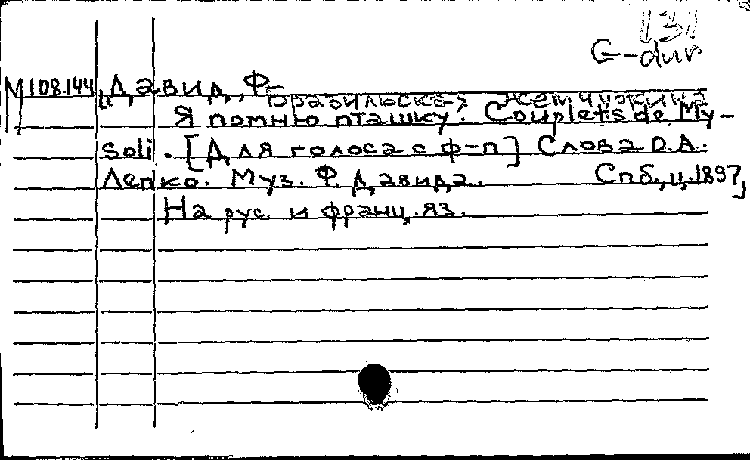 131
G-dur
М108.144 Давид, Ф-
Бразильская жемчужина
Я помню пташку. Couplets de My-
soli. [Для голоса с ф-п] Слова D.A.
Ленко. Муз. Ф. Давида. Спб., ц. 1897,
На рус. и франц. яз.